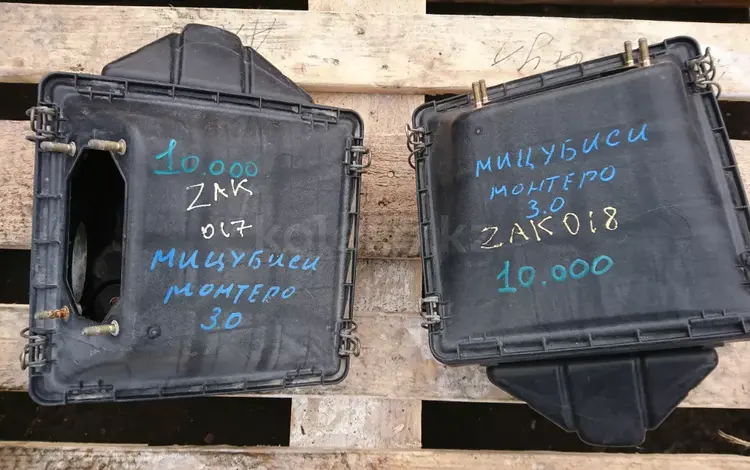 10.000
ZAK
017
МИЦУБИСИ
МОНТЕРО
3.0
МИЦУБИСИ
МОНТЕРО
3.0
ZAK018
10.000